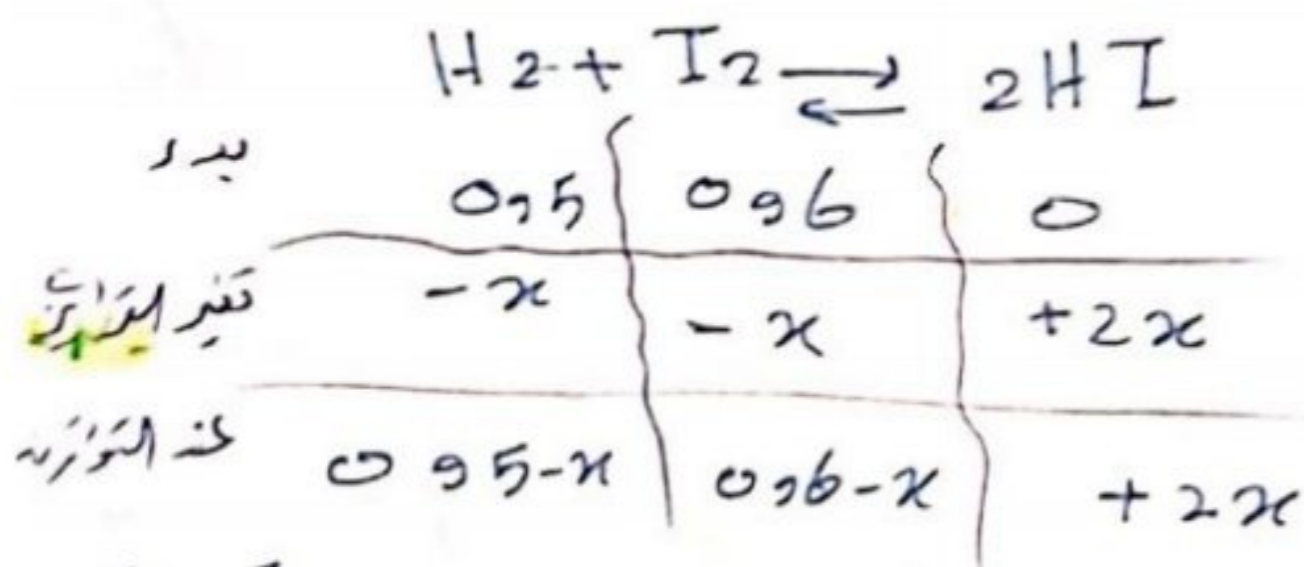 H2 + I2 ⇌ 2HI
بدء 0,5 0,6 0
تغير التراكيز -x -x +2x
عند التوازن 0,5-x 0,6-x +2x